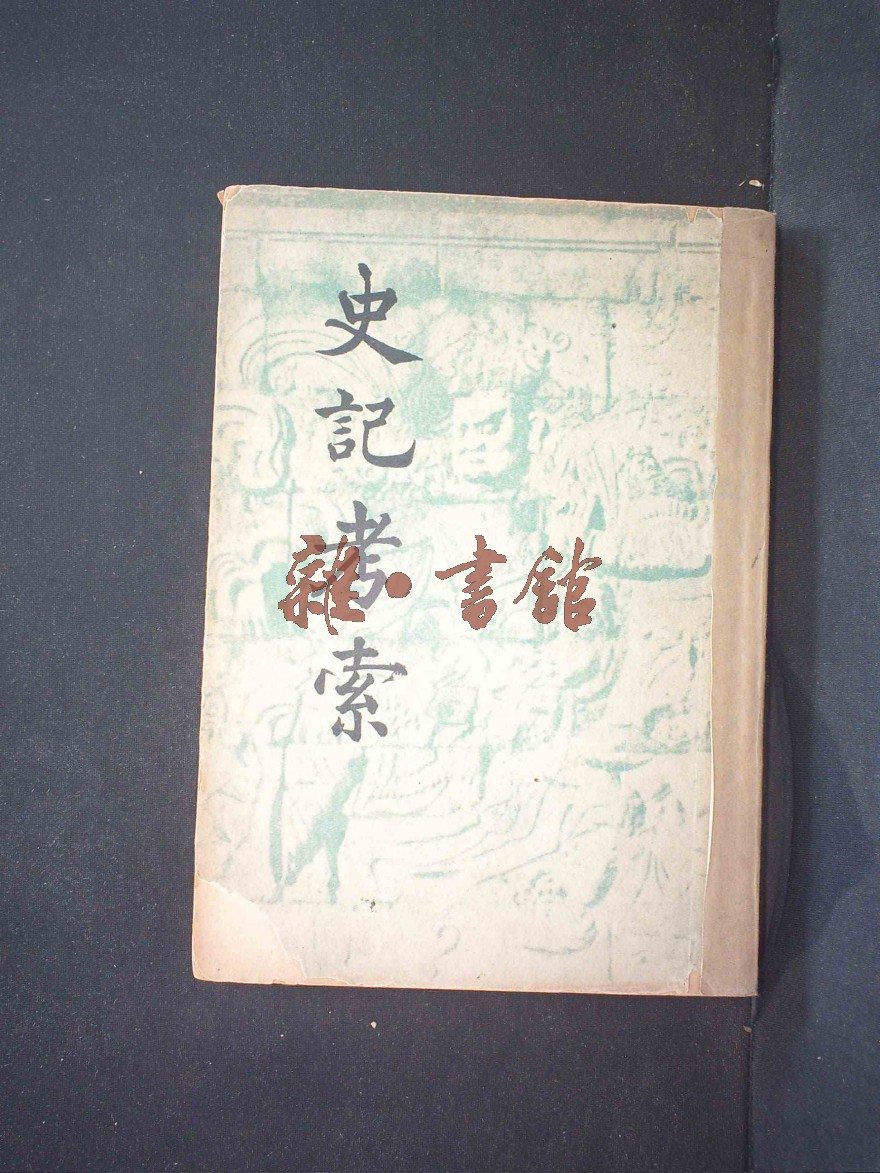 史記考索
雜·書館